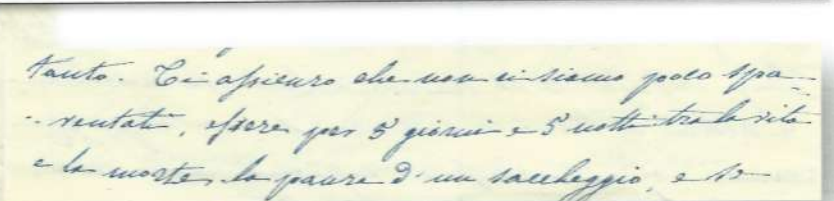 tanto. Ti assicuro che non ci siamo poco spa-
-ventati, essere per 5 giorni e 5 notti tra la vita
e la morte, la paura d'un saccheggio, e se